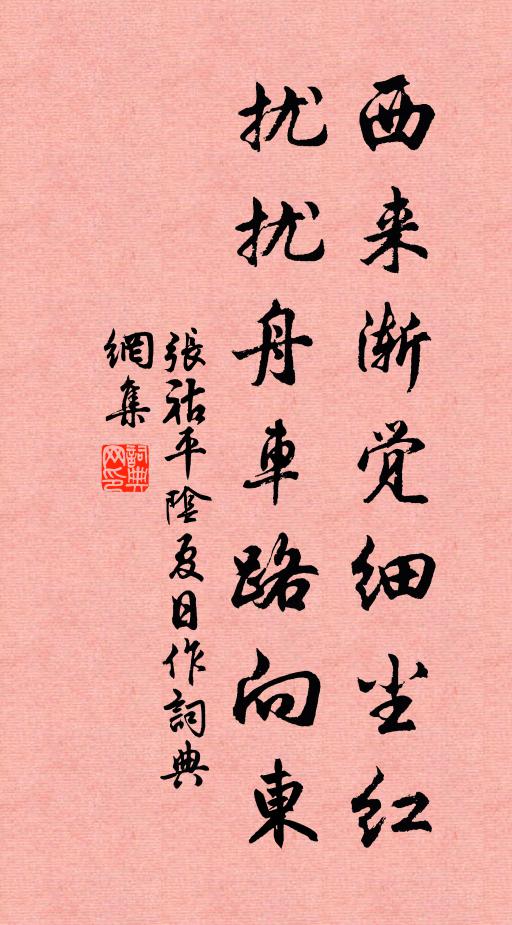 西来渐觉细尘红
扰扰舟車路向東
張祜平陰夏日作詞典
網集
詞典
网印